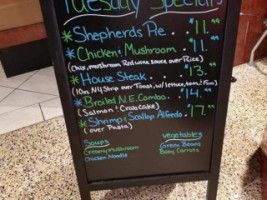 Tuesday Specials
* Shepherds Pie . . $11.99
* Chicken & Mushroom . . $11.99
(Chix, mushroom, Red wine sauce over Rice)
* House Steak . . $13.99
(10oz NY Strip over Toast, w/ lettuce, tom, & Fries)
* Broiled N.E. Combo . $14.99
(Salmon & Crabcake)
* Shrimp & Scallop Alfredo . $17.99
(over Pasta)
Soups
Creamy Mushroom
Chicken Noodle
Vegetables
Green Beans
Baby Carrots